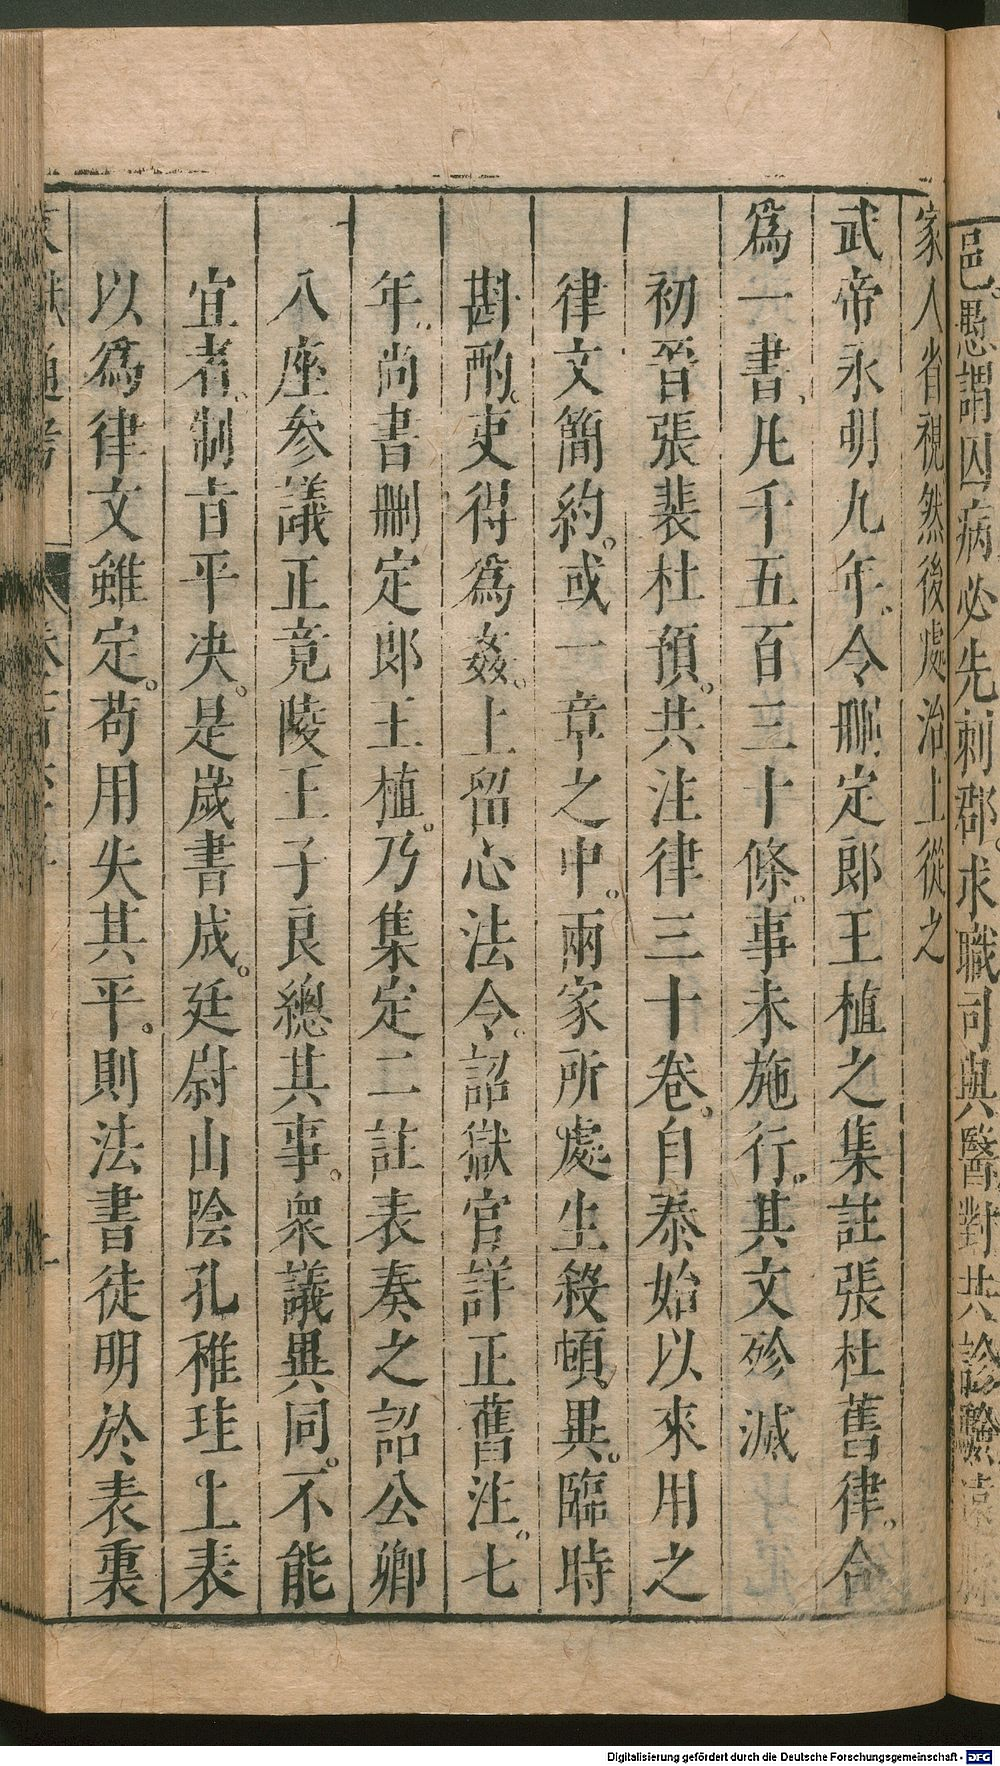 邑愚謂囚病必先刺郡。求職司與醫對共診驗遠
家人省視然後處治上從之
武帝永明九年。令刪定郎王植之集註張杜舊律。合
爲一書。凡千五百三十條。事未施行。其文殄滅
初晉張裴杜預。共注律三十卷。自泰始以來用之
律文簡約。或一章之中。兩家所處生殺頓異。臨時
斟酌。吏得爲姦。上留心法令。詔獄官詳正舊注。七
年。尚書刪定郎王植。乃集定二註表奏之詔公卿
八座參議正竟陵王子良總其事。衆議異同。不能
宜者。制旨平决。是歲書成。廷尉山陰孔稚珪上表
以爲律文雖定。苟用失其平。則法書徒明於表裏
Digitalisierung gefördert durch die Deutsche Forschungsgemeinschaft - DFG